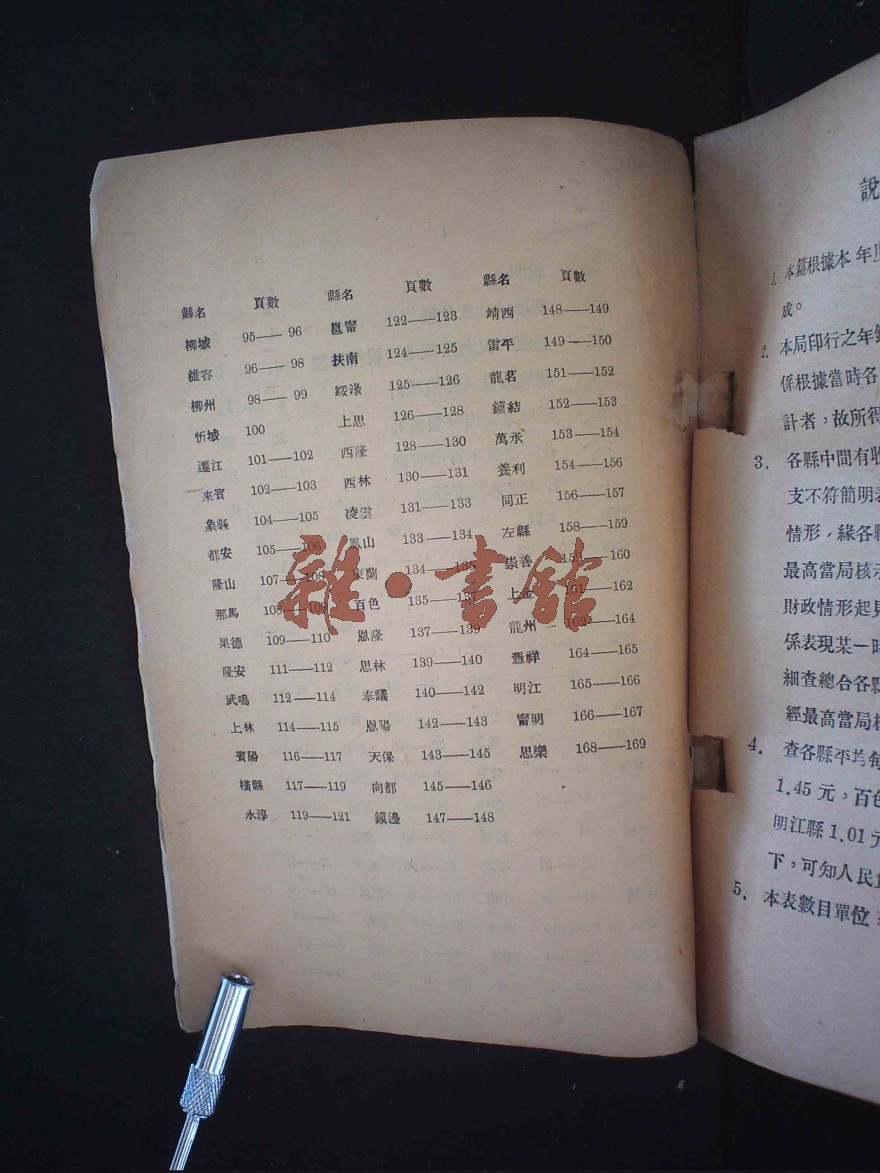 縣名 頁數 縣名 頁數 縣名 頁數
柳城 95—96 邕甯 122——123 靖西 148——149
雒容 96—98 扶南 124——125 雷平 149——150
柳州 98—99 綏淥 125——126 龍茗 151——152
忻城 100 上思 126——128 鎭結 152——153
遷江 101——102 西隆 128——130 萬承 153——154
來賓 102——103 西林 130——131 養利 154——156
象縣 104——105 凌雲 131——133 同正 156——157
都安 105——106 鳳山 133——134 左縣 158——159
隆山 107——108 東蘭 134——135 崇善 159——160
那馬 108——109 百色 135——137 上金 161——162
果德 109——110 恩隆 137——139 龍州 162——164
隆安 111——112 思林 139——140 憑祥 164——165
武鳴 112——114 奉議 140——142 明江 165——166
上林 114——115 恩陽 142——143 甯明 166——167
賓陽 116——117 天保 143——145 思樂 168——169
橫縣 117——119 向都 145——146
永淳 119——121 鎭邊 147——148
雜·書館
說
1. 本篇根據本年度
成。
2. 本局印行之年
係根據當時各
計者，故所得
3. 各縣中間有收
支不符簡明表
情形，緣各縣
最高當局核示
財政情形起見
係表現某一時
細查總合各縣
經最高當局核
4. 查各縣平均每
1.45 元，百色
明江縣 1.01 元
下，可知人民負
5. 本表數目單位